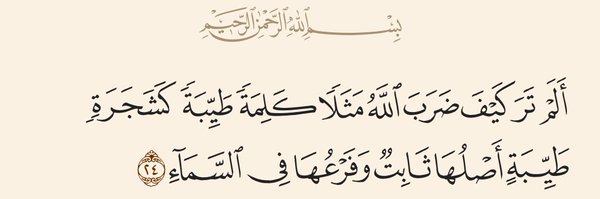 بِسْمِ ٱللَّهِ ٱلرَّحْمَٰنِ ٱلرَّحِيمِ
أَلَمْ تَرَ كَيْفَ ضَرَبَ ٱللَّهُ مَثَلًا كَلِمَةً طَيِّبَةً كَشَجَرَةٍ
طَيِّبَةٍ أَصْلُهَا ثَابِتٌ وَفَرْعُهَا فِى ٱلسَّمَآءِ ٢٤